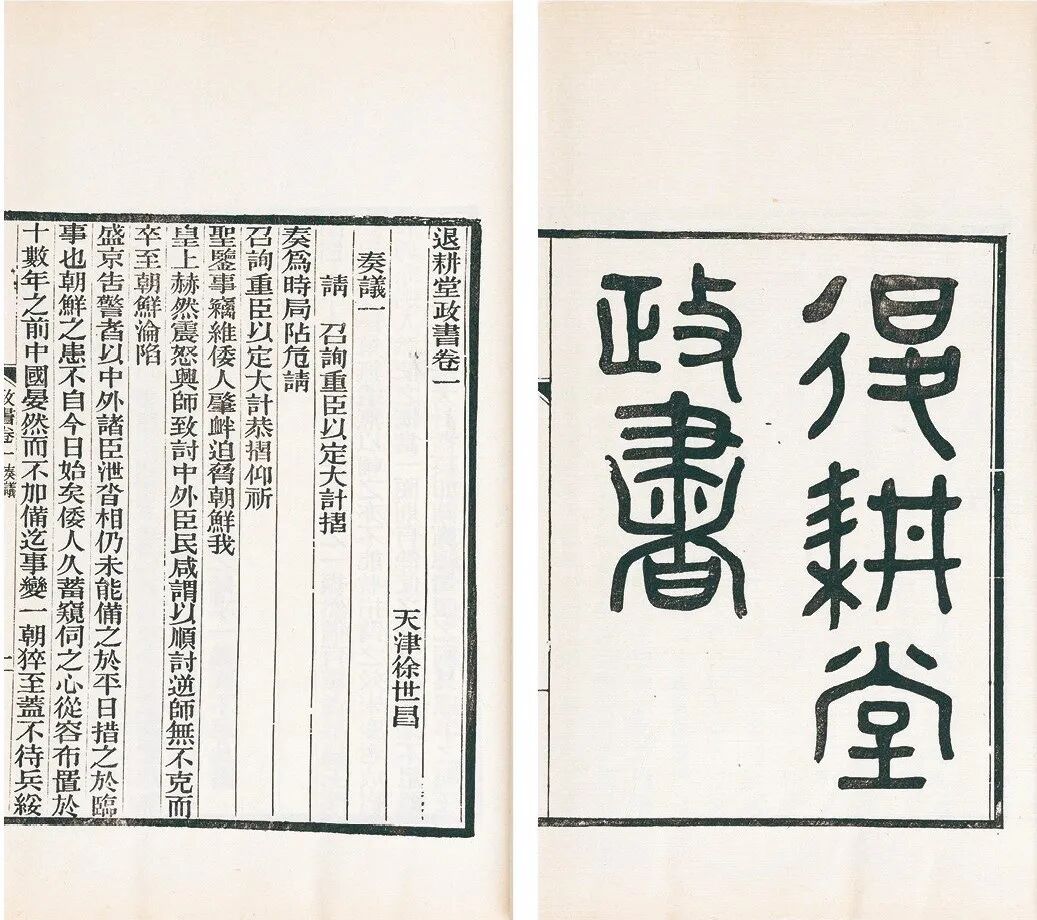 退耕堂
政書
退耕堂政書卷一
天津徐世昌
奏議一
請 召詢重臣以定大計摺
奏爲時局阽危請
召詢重臣以定大計恭摺仰祈
聖鑒事竊維倭人肇衅迫脅朝鮮我
皇上赫然震怒興師致討中外臣民咸謂以順討逆師無不克而
卒至朝鮮淪陷
盛京告警者以中外諸臣泄沓相仍未能備之於平日措之於臨
事也朝鮮之患不自今日始矣倭人久蓄窺伺之心從容布置於
十數年之前中國晏然而不加備迄事變一朝猝至蓋不待兵綏
政書卷一 奏議